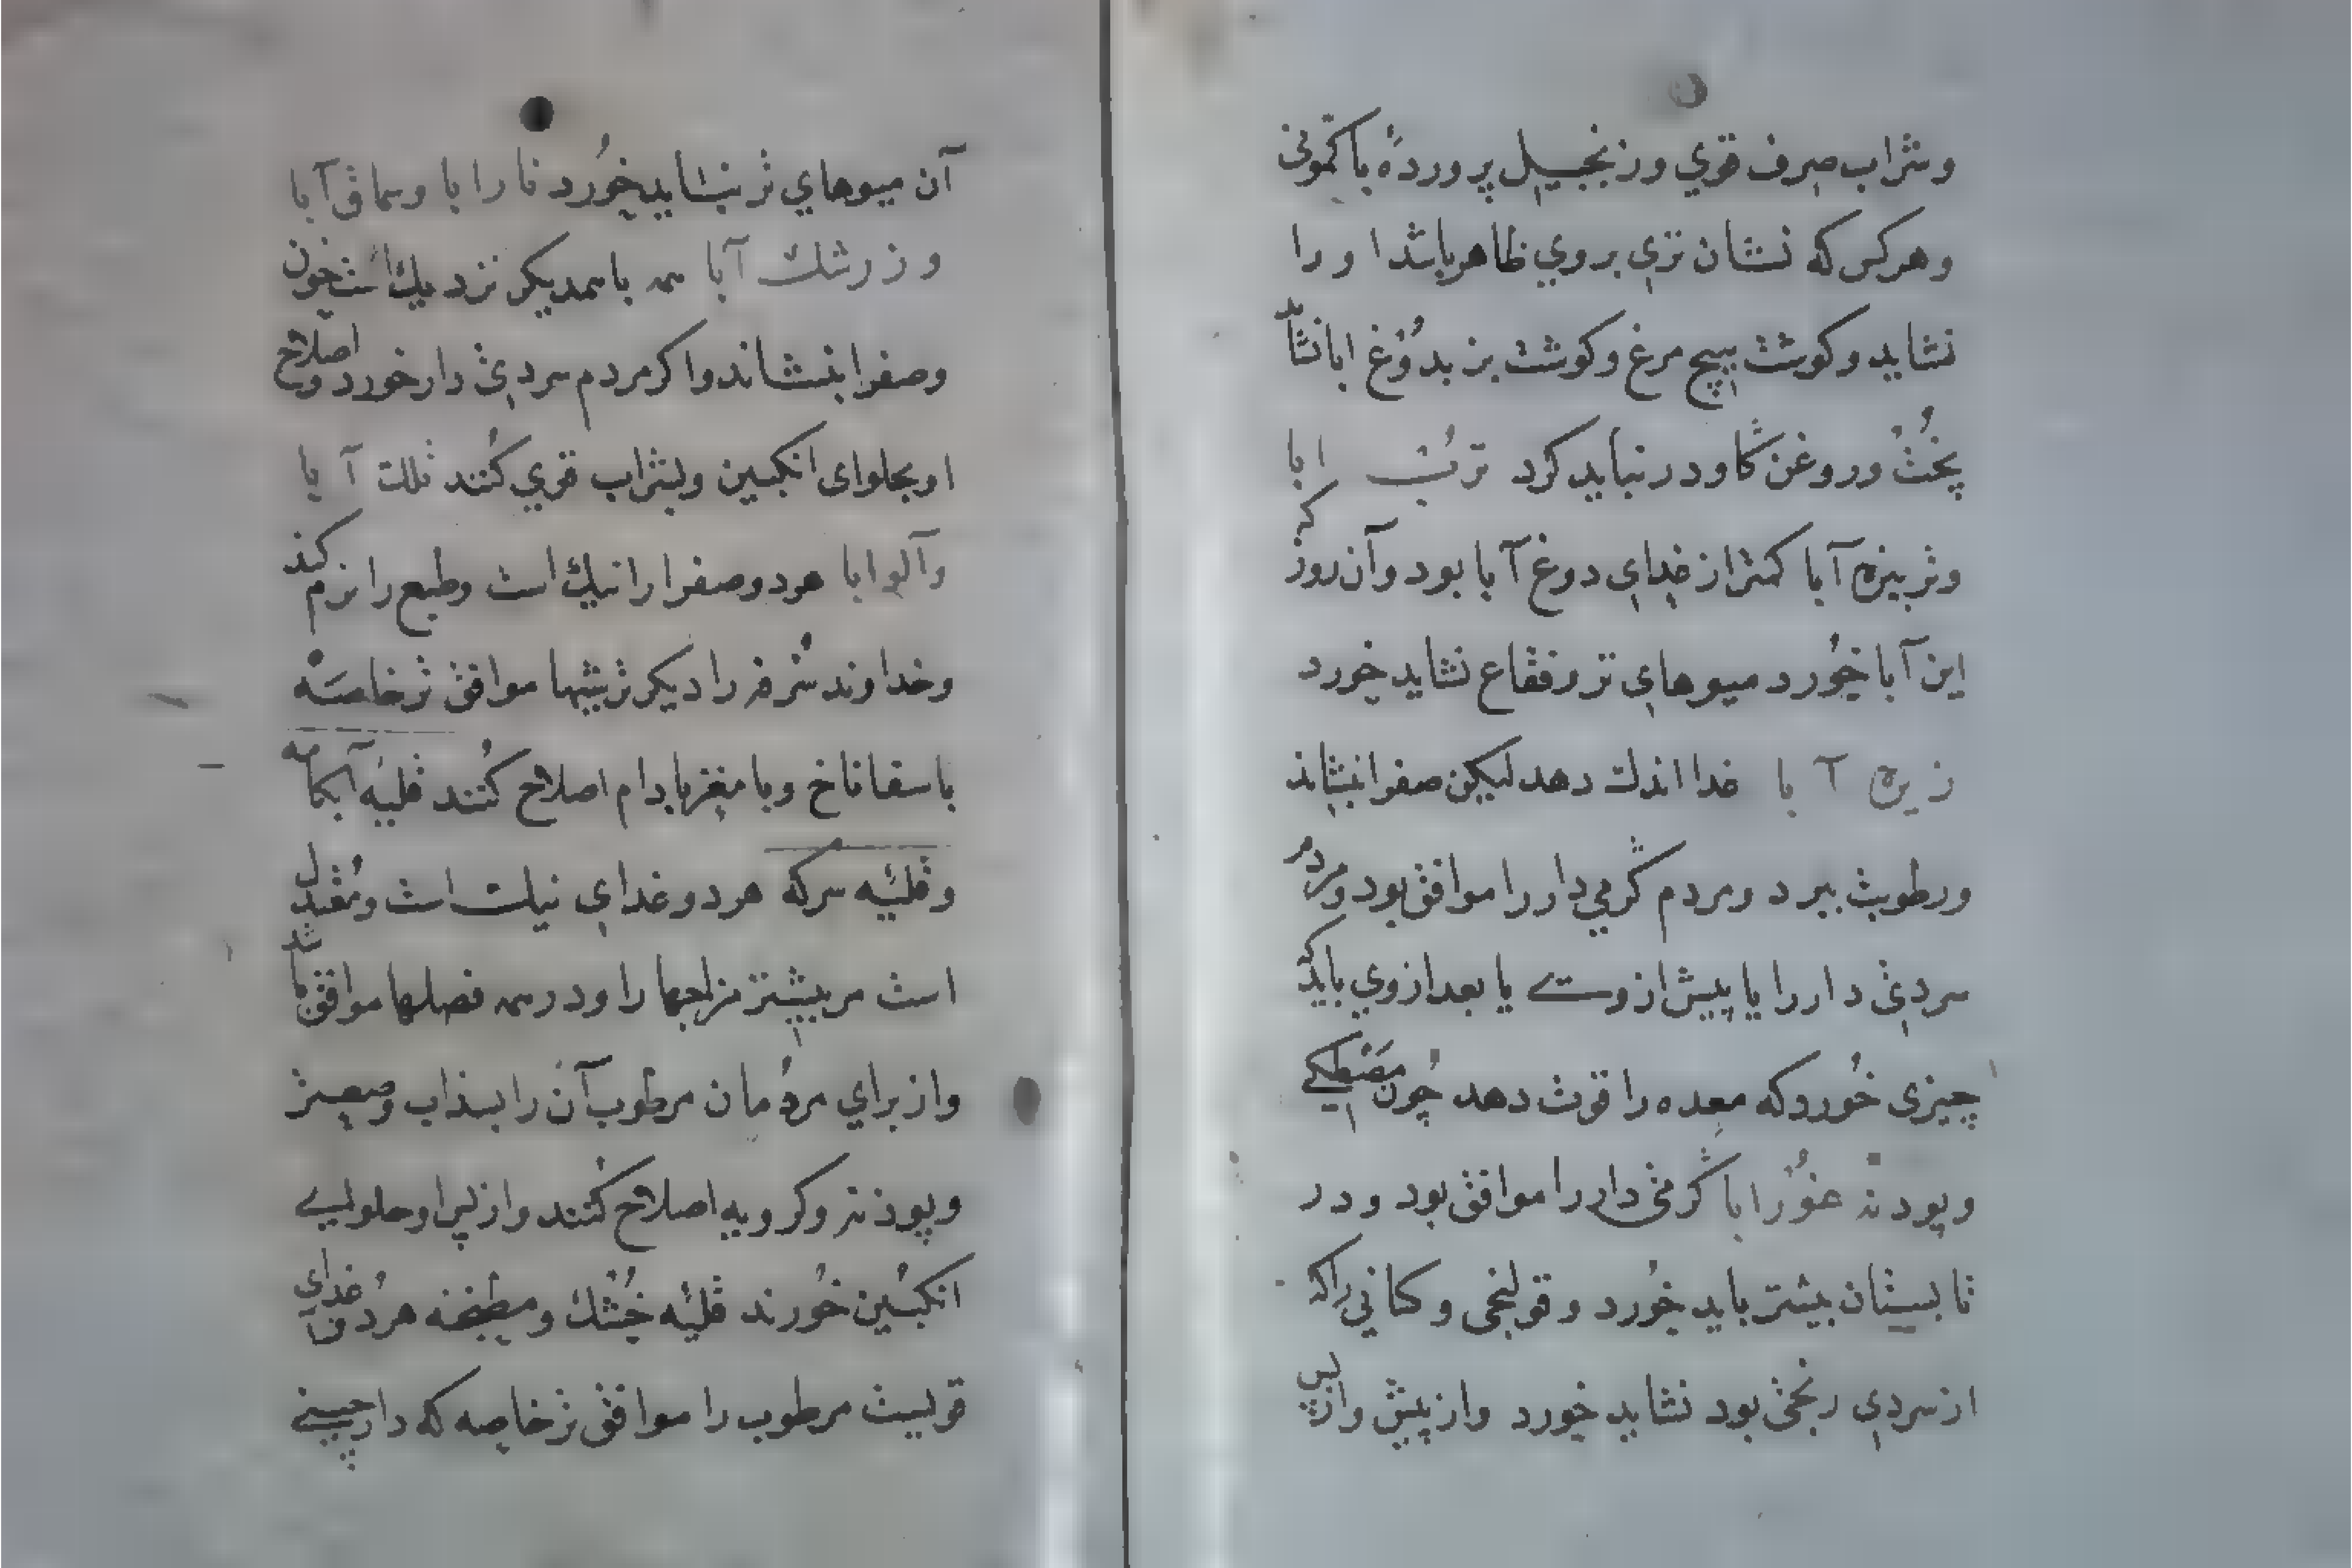 وشراب صرف قوي وزنجبيل پرورده با كمونی
وهركس كه نشان تري بروي ظاهر باشد اورا
نشايد وكوشت بچه مرغ وكوشت بز بدوغ ابا نشايد
پخت وروغن گاو در نبايد كرد ترب ابا
وتربيزه آبا كمتر از غداي دوغ آبا بود وآن روز كه
اين آبا خورد ميوهاي تر وفقاع نشايد خورد
زيره آبا غدا اندك دهد ليكن صفرا بنشاند
ورطوبت ببرد ومردم گرمي دار را موافق بود ومردم
سردي دار را يا پيش از وے يا بعد از وي بايد كه
چيزی خورد كه معده را قوت دهد چون مصطكے
وپودنه غورا با گرمی دار را موافق بود ودر
تابستان بيشتر بايد خورد وقولنجی وكسانی را كه
از سردي رنجی بود نشايد خورد واز پيش واز پس
آن ميوهاي تر نشايد خورد نار ابا وسماق آبا
وزرشك آبا همه با همديكر نزديك است خون
وصفرا بنشاند واكر مردم سردي دار خورد اصلاح
او بحلوای انكبين وبشراب قوي كنند آبا
وآلو ابا هردو صفرا را نيك است وطبع را نرم كند
وخداوند سرفه را ديكر ترشيها موافق تر خاصه
با سفاناخ وبا مغز بادام اصلاح كنند قليه آبكامه
وقليه سركه هردو غداي نيك است ومعتدل
است مر بيشتر مزاجها را ودر همه فصلها موافق باشد
واز براي مردمان مرطوب آن را بسذاب وصعتر
وپودنه وكرويه اصلاح كنند واز پس او حلوايے
انكبين خورند قليه خشك ومطجنه هردو غداي
قويست مرطوب را موافق تر خاصه كه دارچينے